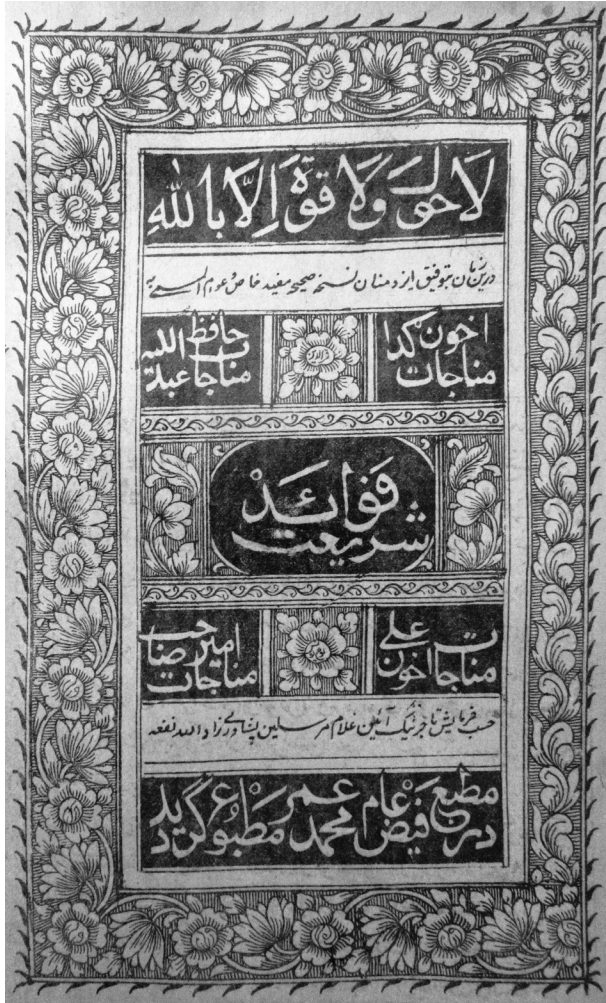 لَا حول وَلَا قوّةَ اِلّا بِاللهِ
درین زمان بتوفیق ایزد منان نسخه صحیحه مفید خاص و عوام المسمی به
مناجات اخون گدا
مناجات حافظ عبد الله
فَوائدْ
شریعت
مناجات اخون علی
مناجات امیر صاحب
حسب فرمایش تاجر نیک آئین غلام مرسلین پشاوری زاد الله نفعه
در مطبع فیض عام محمد عمر مطبوع گردید